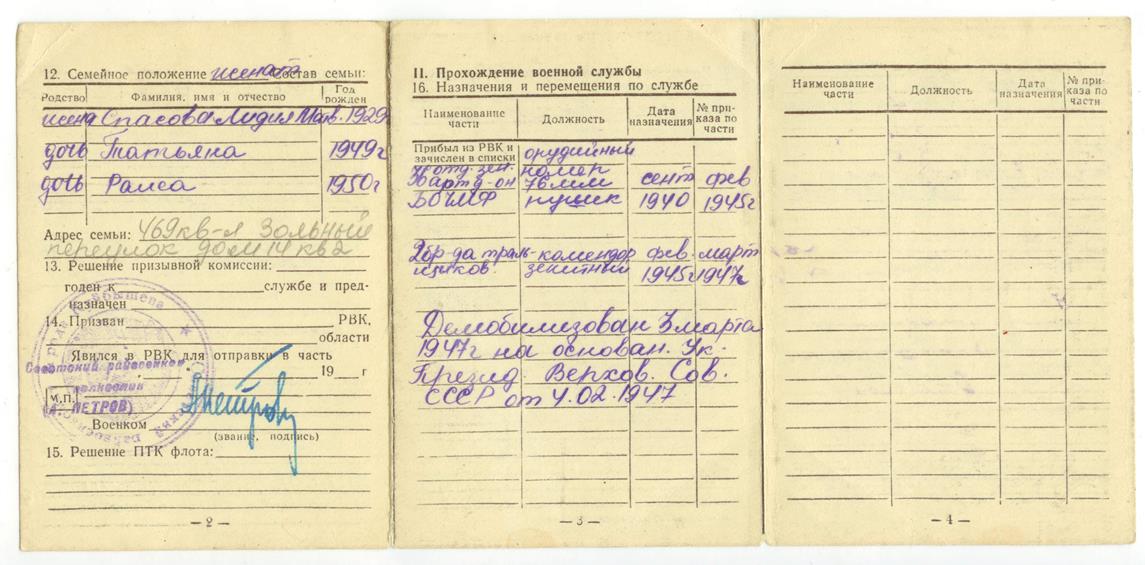 12. Семейное положение женат Состав семьи:
Родство Фамилия, имя и отчество Год рожден
жена Спасова Лидия Матв. 1929
дочь Татьяна 1949г
дочь Раиса 1950г
Адрес семьи: 469кв-л Зольный
переулок дом 14 кв 2
13. Решение призывной комиссии:
годен к службе и пред-
назначен
14. Призван РВК,
области
Явился в РВК для отправки в часть
19 г
Советский райвоенком
полковник
(А. ПЕТРОВ)
М.П.
Военком
(звание, подпись)
15. Решение ПТК флота:
— 2 —
II. Прохождение военной службы
16. Назначения и перемещения по службе
Наименование части Должность Дата назначения № приказа по части
Прибыл из РВК и
зачислен в списки орудийный
отд. зен. номер
арт д-он 76 мм сент фев
пушек 1940 1945г
2 бр-да траль- комендор фев. март
щиков. зенитный 1945г 1947г
Демобилизован 3 марта
1947г на основан. Ук.
Презид. Верхов. Сов.
СССР от 4.02.1947
— 3 —
Наименование части Должность Дата назначения № приказа по части
— 4 —